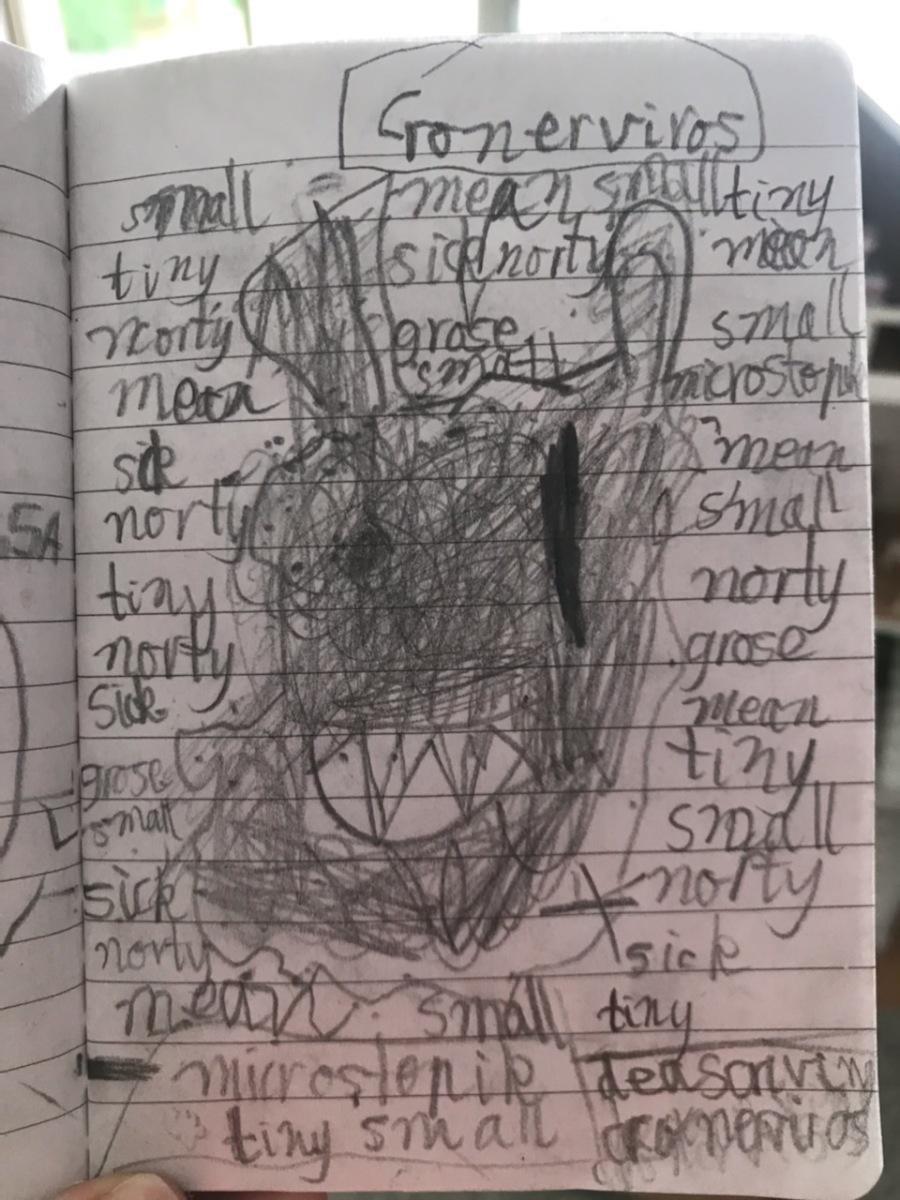 Cronerviros
small mean small tiny
tiny sick norty mean
norty grose small
mean small microstopik
sick mean
norty small
tiny norty
norty grose
sick mean
grose tiny
small small
sick norty
norty sick
mean small tiny
microstopik
tiny small
5A